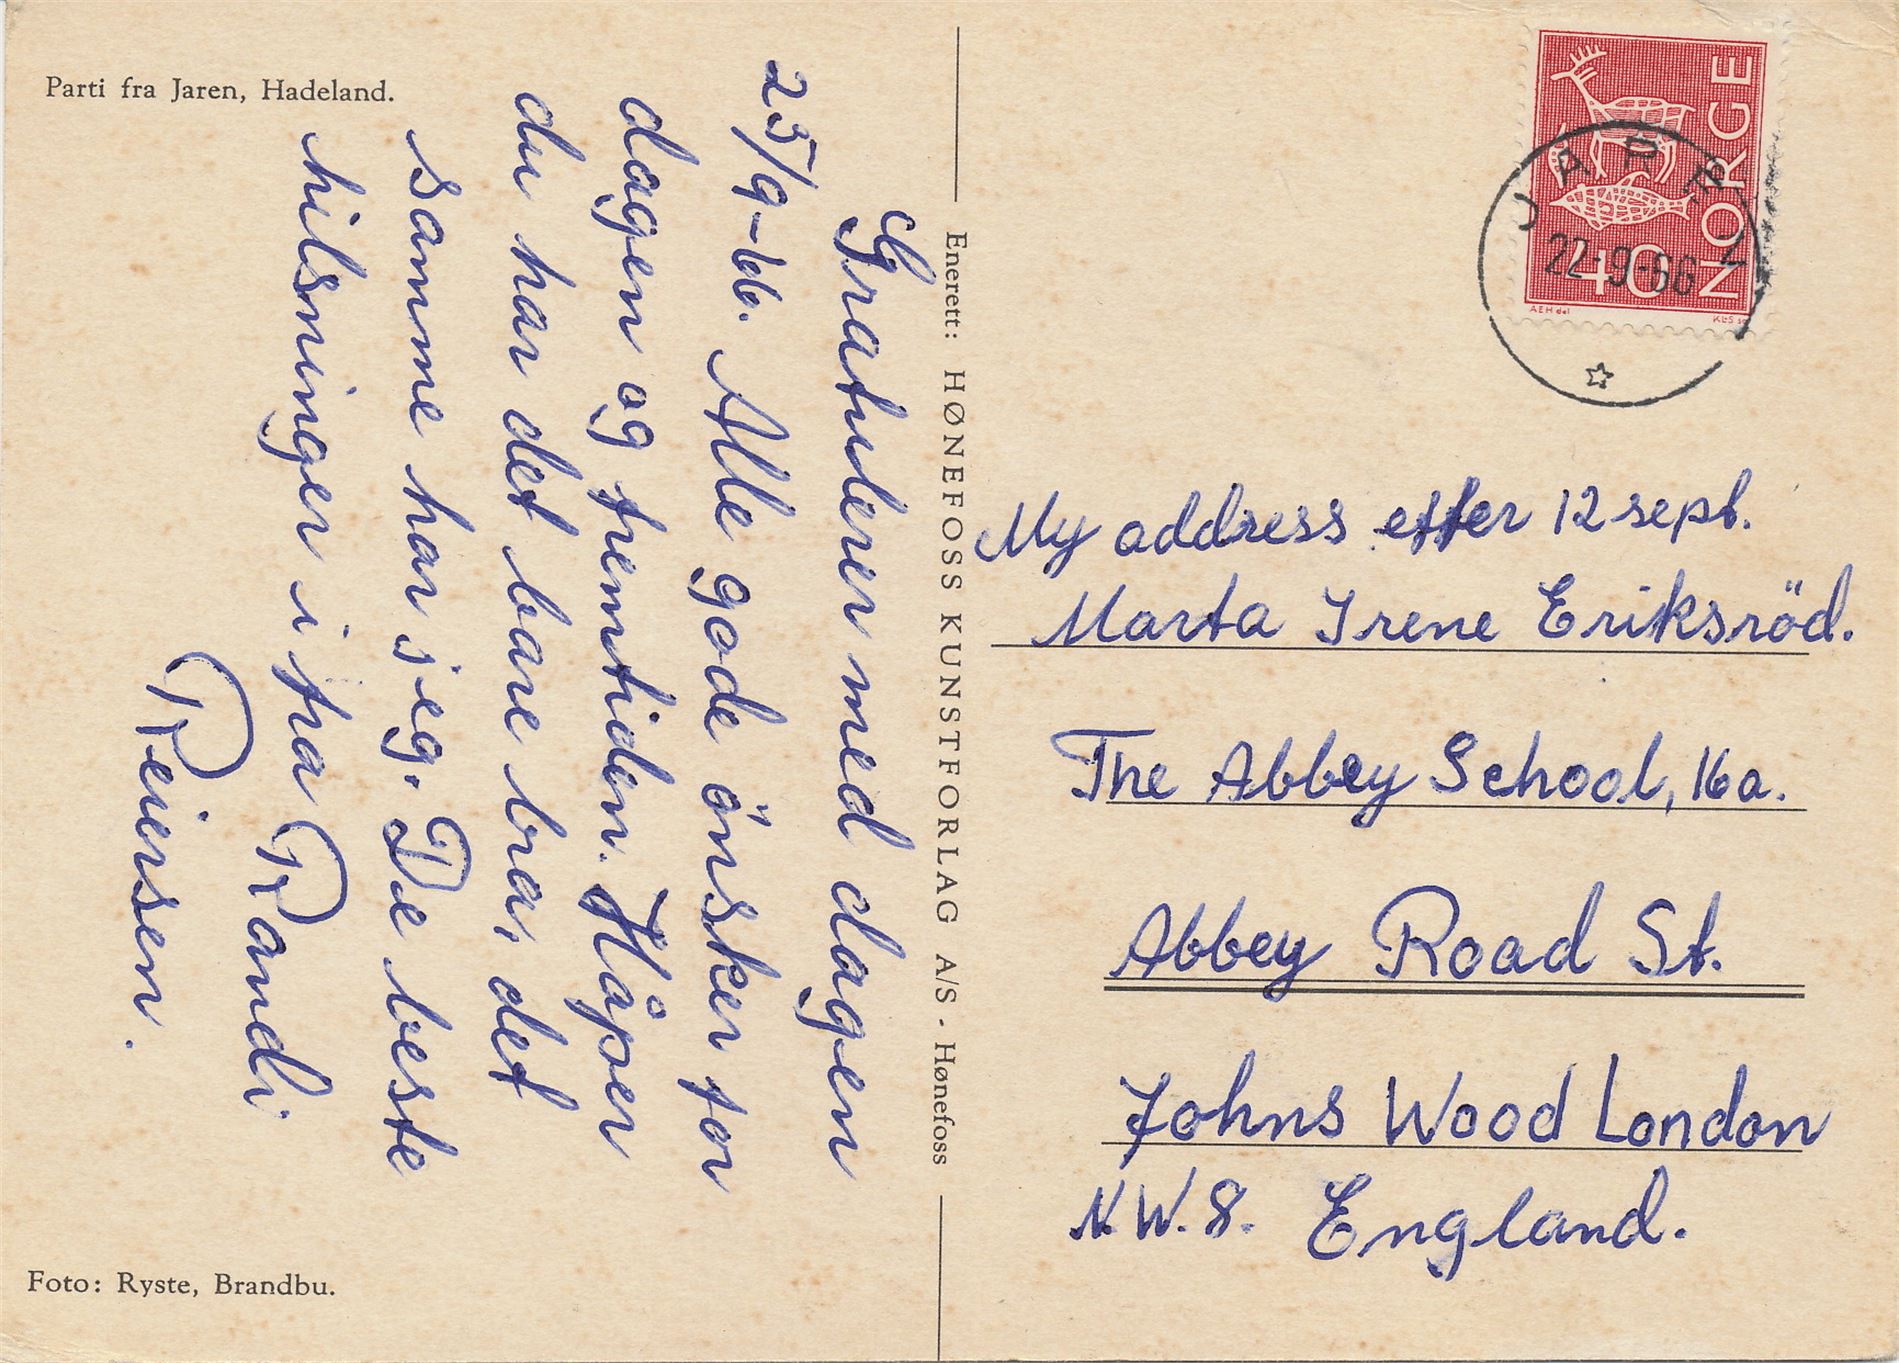 Parti fra Jaren, Hadeland.
Gratulerer med dagen
25/9-66. Alle gode önsker for
dagen og fremtiden. Håper
du har det bare bra, det
samme har jeg. De beste
hilsninger i fra Randi
Reiersen.
Foto: Ryste, Brandbu.
Enerett: HØNEFOSS KUNSTFORLAG A/S - Hønefoss
NORGE
40
AEH del
JAREN
22-9-66
My address etter 12 sept.
Marta Irene Eriksröd.
The Abbey School, 16a.
Abbey Road St.
Johns Wood London
N.W.8. England.